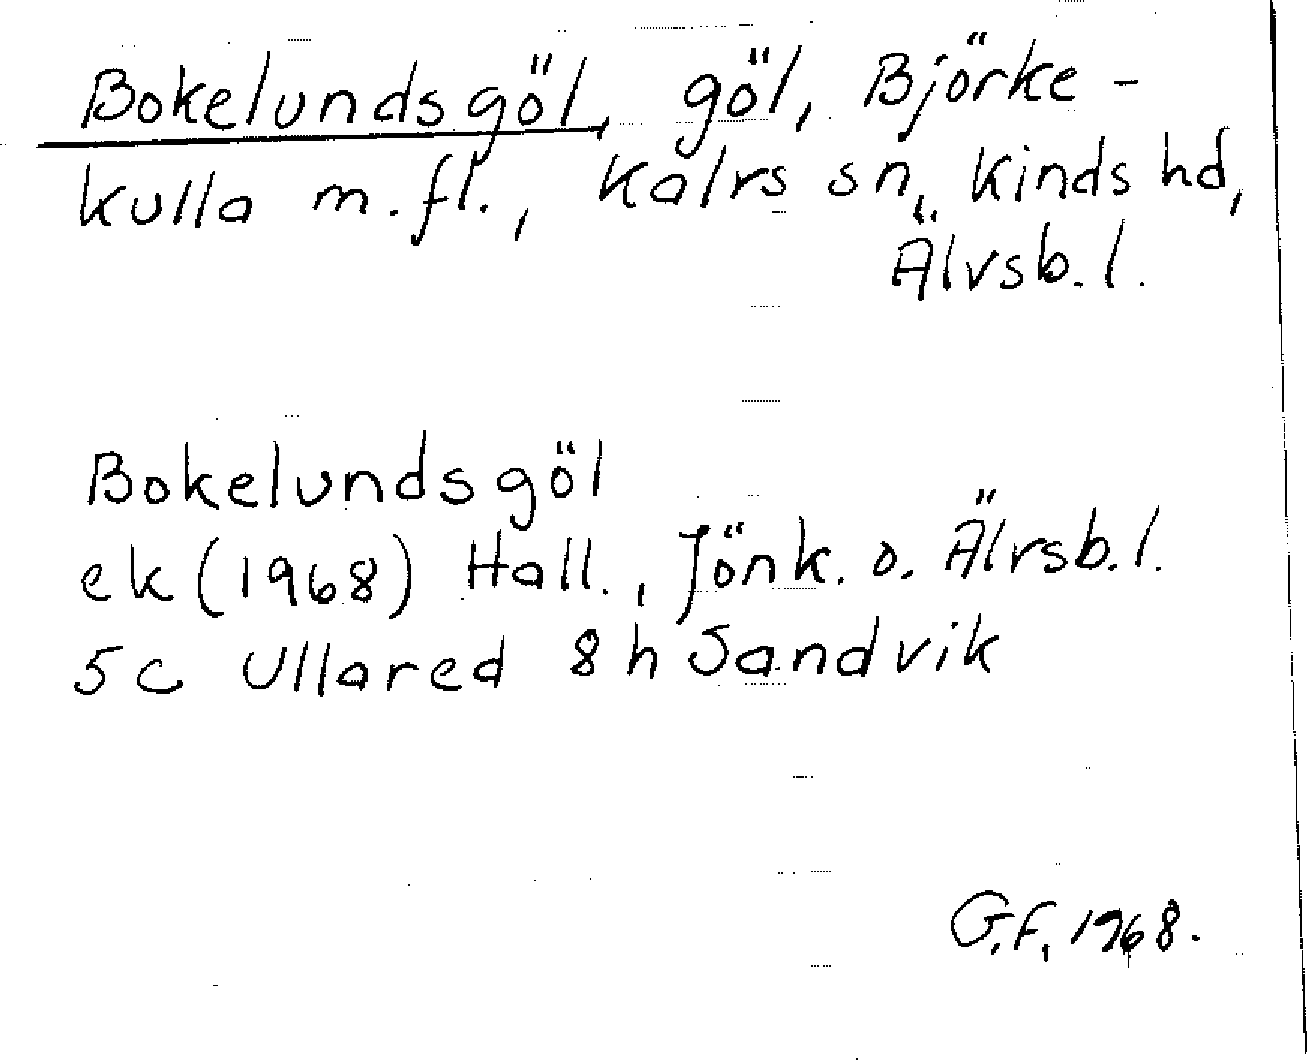 Bokelundsgöl, göl, Björke-
kulla m.fl., Kalvs sn, Kinds hd,
Älvsb.l.
Bokelundsgöl
ek (1968) Hall., Jönk. o. Älvsb.l.
5c Ullared 8h Sandvik
G.F. 1968.